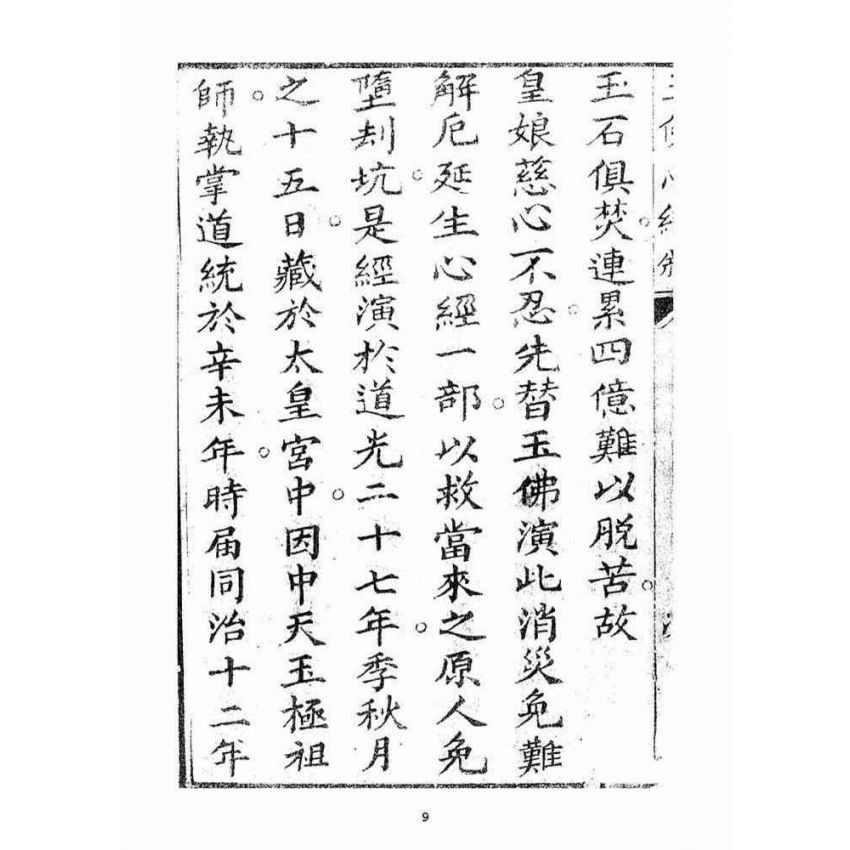 玉石俱焚。連累四億難以脫苦。故
皇娘慈心不忍。先替玉佛演此消災免難
解厄延生心經一部。以救當來之原人免
墮刦坑。是經演於道光二十七年。季秋月
之十五日。藏於太皇宮中。因中天玉極祖
師。執掌道統於辛未年。時届同治十二年
9